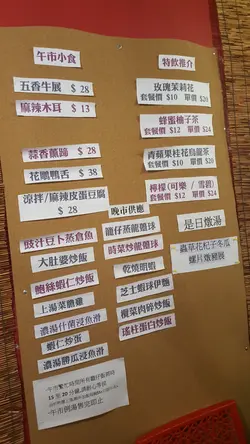 午市小食
五香牛展 $ 28
麻辣木耳 $ 13
蒜香薰蹄 $ 28
花雕鴨舌 $ 38
涼拌/麻辣皮蛋豆腐
$ 28
豉汁豆卜蒸倉魚
大肚婆炒飯
鮑絲蝦仁炒飯
上湯菜膽雞
濃湯什菌浸魚滑
蝦仁炒蛋
濃湯勝瓜浸魚滑
晚市供應
籠仔蒸龍躉球
時菜炒龍躉球
乾燒明蝦
芝士蝦球伊麵
欖菜肉碎炒飯
瑤柱蛋白炒飯
特飲推介
玫瑰茉莉花
套餐價 $10 單價 $20
蜂蜜柚子茶
套餐價 $12 單價 $24
青蘋果桂花烏龍茶
套餐價 $10 單價 $20
檸檬(可樂 / 雪碧)
套餐價 $12 單價 $24
是日燉湯
蟲草花杞子冬瓜
螺片燉豬展
午市例湯售完即止